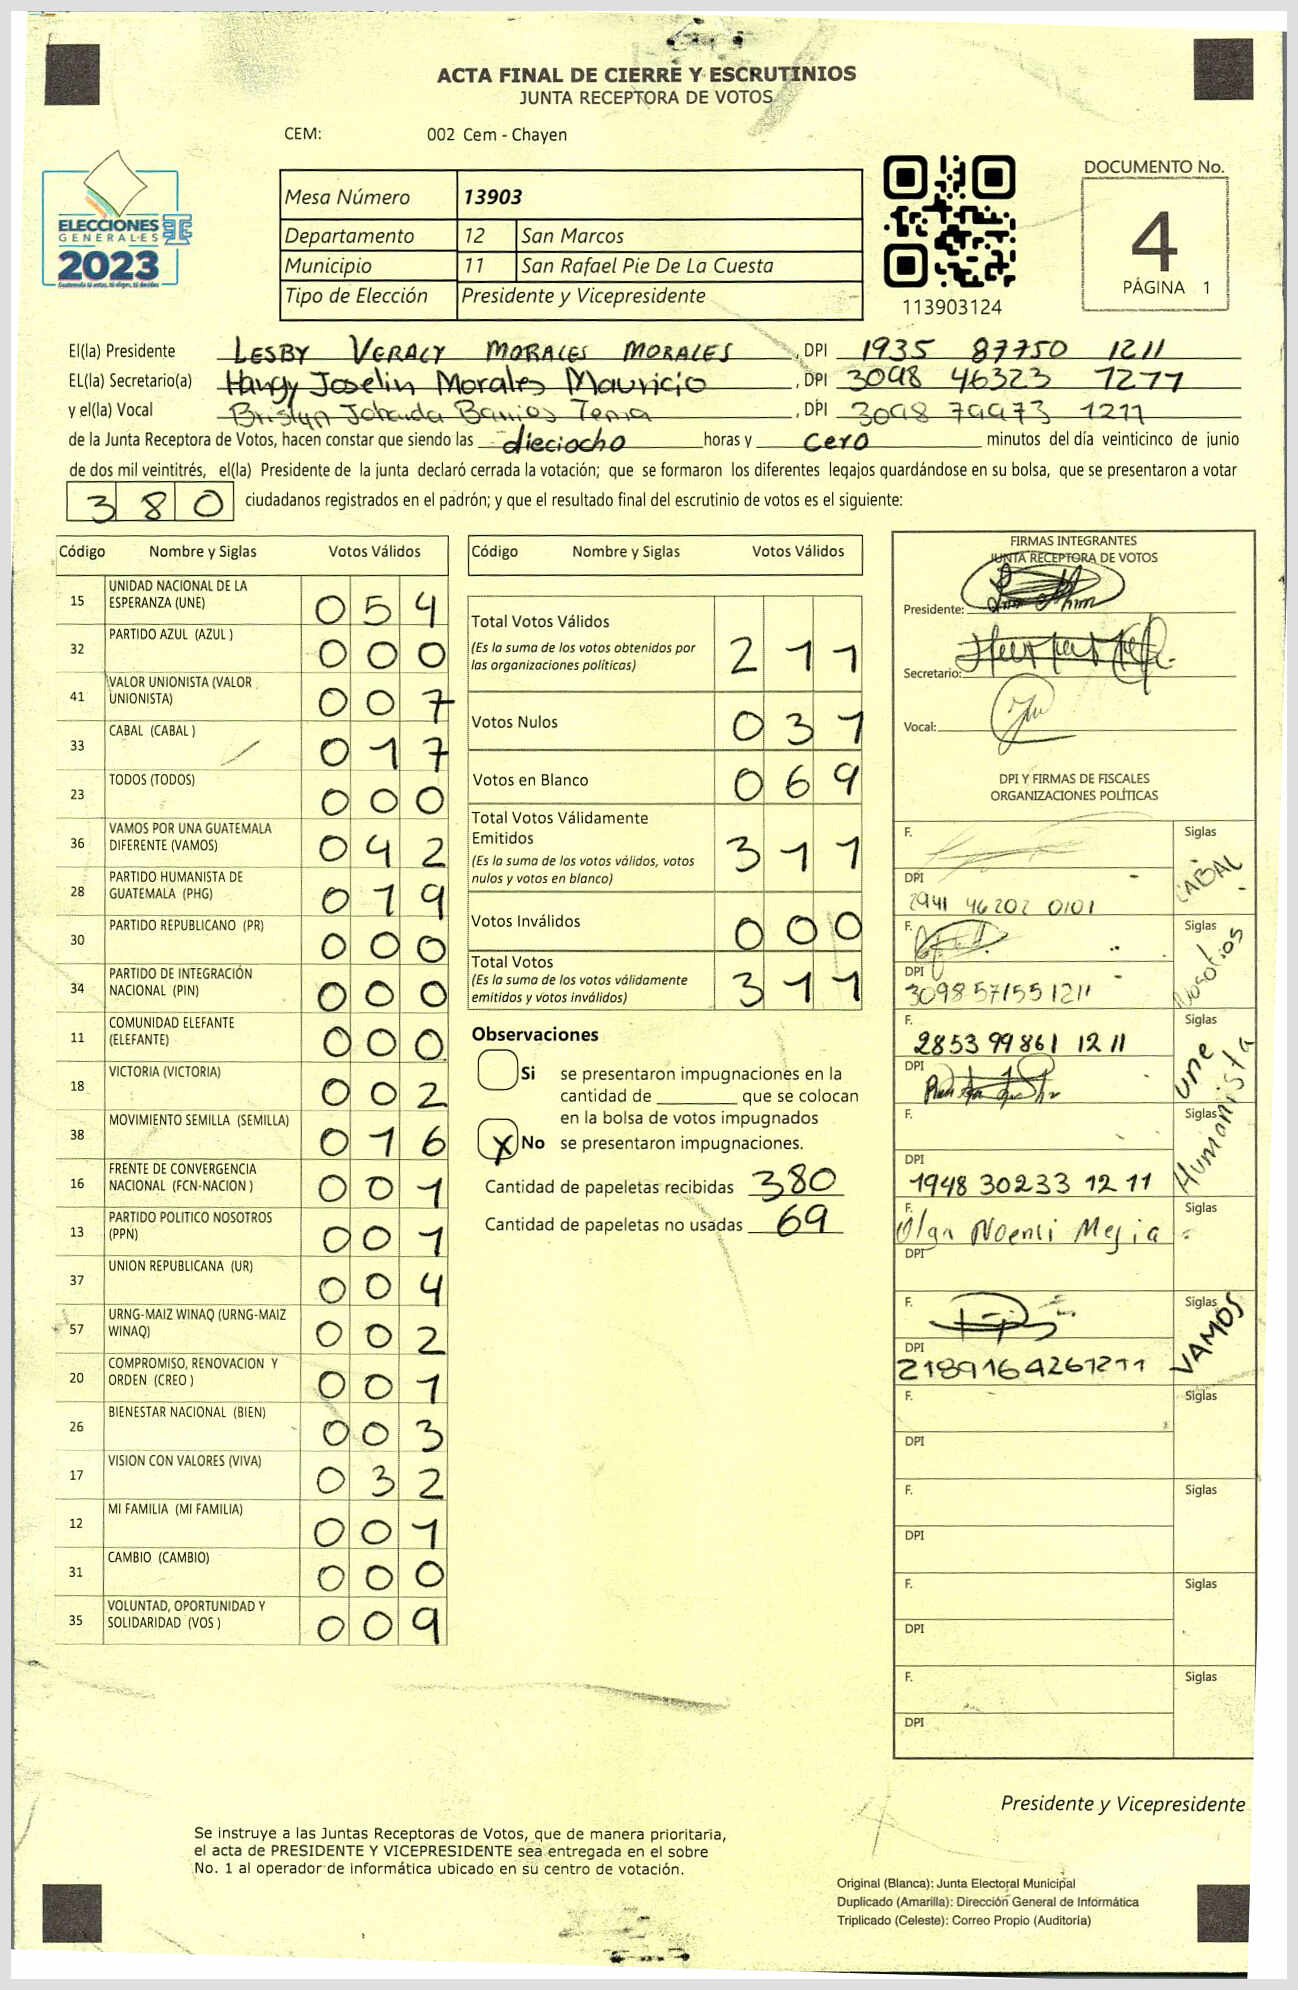 ACTA FINAL DE CIERRE Y ESCRUTINIOS
JUNTA RECEPTORA DE VOTOS
CEM: 002 Cem - Chayen
ELECCIONES
GENERALES
2023
Guatemala tú votas, tú eliges, tú decides
Mesa Número 13903
Departamento 12 San Marcos
Municipio 11 San Rafael Pie De La Cuesta
Tipo de Elección Presidente y Vicepresidente
113903124
DOCUMENTO No.
4
PÁGINA 1
El(la) Presidente LESBY VERALY MORALES MORALES, DPI 1935 87750 1211
EL(la) Secretario(a) Joselin Morales Mauricio, DPI 3098 46323 1211
y el(la) Vocal Barrios, DPI 3098 79973 1211
de la Junta Receptora de Votos, hacen constar que siendo las dieciocho horas y cero minutos del día veinticinco de junio
de dos mil veintitrés, el(la) Presidente de la junta declaró cerrada la votación; que se formaron los diferentes legajos quardándose en su bolsa, que se presentaron a votar
380 ciudadanos registrados en el padrón; y que el resultado final del escrutinio de votos es el siguiente:
Código Nombre y Siglas Votos Válidos
15 UNIDAD NACIONAL DE LA ESPERANZA (UNE) 054
32 PARTIDO AZUL (AZUL ) 000
41 VALOR UNIONISTA (VALOR UNIONISTA) 007
33 CABAL (CABAL ) 017
23 TODOS (TODOS) 000
36 VAMOS POR UNA GUATEMALA DIFERENTE (VAMOS) 042
28 PARTIDO HUMANISTA DE GUATEMALA (PHG) 019
30 PARTIDO REPUBLICANO (PR) 000
34 PARTIDO DE INTEGRACIÓN NACIONAL (PIN) 000
11 COMUNIDAD ELEFANTE (ELEFANTE) 000
18 VICTORIA (VICTORIA) 002
38 MOVIMIENTO SEMILLA (SEMILLA) 016
16 FRENTE DE CONVERGENCIA NACIONAL (FCN-NACION ) 001
13 PARTIDO POLITICO NOSOTROS (PPN) 001
37 UNION REPUBLICANA (UR) 004
57 URNG-MAIZ WINAQ (URNG-MAIZ WINAQ) 002
20 COMPROMISO, RENOVACION Y ORDEN (CREO ) 001
26 BIENESTAR NACIONAL (BIEN) 003
17 VISION CON VALORES (VIVA) 032
12 MI FAMILIA (MI FAMILIA) 001
31 CAMBIO (CAMBIO) 000
35 VOLUNTAD, OPORTUNIDAD Y SOLIDARIDAD (VOS ) 009
Código Nombre y Siglas Votos Válidos
Total Votos Válidos 211
(Es la suma de los votos obtenidos por
las organizaciones políticas)
Votos Nulos 031
Votos en Blanco 069
Total Votos Válidamente
Emitidos 311
(Es la suma de los votos válidos, votos
nulos y votos en blanco)
Votos Inválidos 000
Total Votos 311
(Es la suma de los votos válidamente
emitidos y votos inválidos)
Observaciones
Si se presentaron impugnaciones en la
cantidad de ________ que se colocan
en la bolsa de votos impugnados
X No se presentaron impugnaciones.
Cantidad de papeletas recibidas 380
Cantidad de papeletas no usadas 69
FIRMAS INTEGRANTES
JUNTA RECEPTORA DE VOTOS
Presidente:
Secretario:
Vocal:
DPI Y FIRMAS DE FISCALES
ORGANIZACIONES POLÍTICAS
F. Siglas CABAL
DPI 2941 46202 0101
F. Siglas Nosotros
DPI 3098 57155 1211
F. 2853 99861 1211 Siglas une
DPI
F. Siglas Humanista
DPI 1948 30233 1211
F. Olga Noemi Mejia Siglas
DPI
F. Siglas VAMOS
DPI 2189164261211
F. Siglas
DPI
F. Siglas
DPI
F. Siglas
DPI
F. Siglas
DPI
Presidente y Vicepresidente
Se instruye a las Juntas Receptoras de Votos, que de manera prioritaria,
el acta de PRESIDENTE Y VICEPRESIDENTE sea entregada en el sobre
No. 1 al operador de informática ubicado en su centro de votación.
Original (Blanca): Junta Electoral Municipal
Duplicado (Amarilla): Dirección General de Informática
Triplicado (Celeste): Correo Propio (Auditoría)